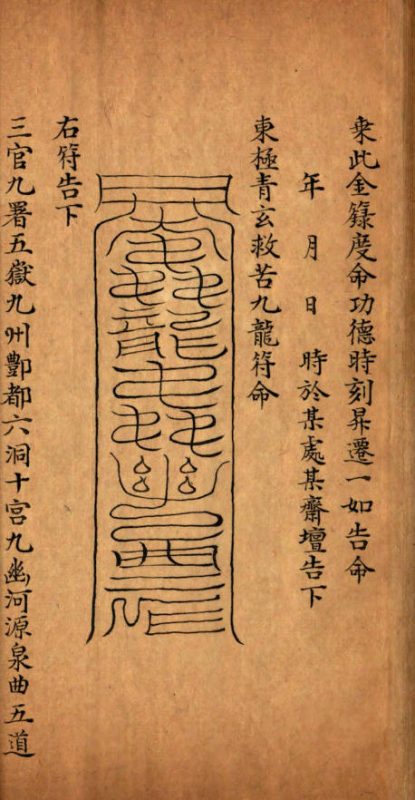 乗此金籙度命功德時刻昇遷一如告命
年月日時於某處某齋壇告下
東極青玄救苦九龍符命
右符告下
三官九署五嶽九州酆都六洞十宮九幽河源泉曲五道